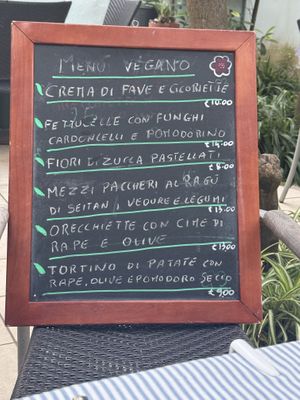 MENU VEGANO
CREMA DI FAVE E CICORIETTE
€10.00
FETTUCELLE CON FUNGHI
CARDONCELLI E POMODORINO
€14.00
FIORI DI ZUCCA PASTELLATI
€8.00
MEZZI PACCHERI AL RAGÚ
DI SEITAN, VEDURE E LEGUMI
€15.00
ORECCHIETTE CON CIME DI
RAPE E OLIVE
€13.00
TORTINO DI PATATE CON
RAPE, OLIVE E POMODORO SECCO
€9,00